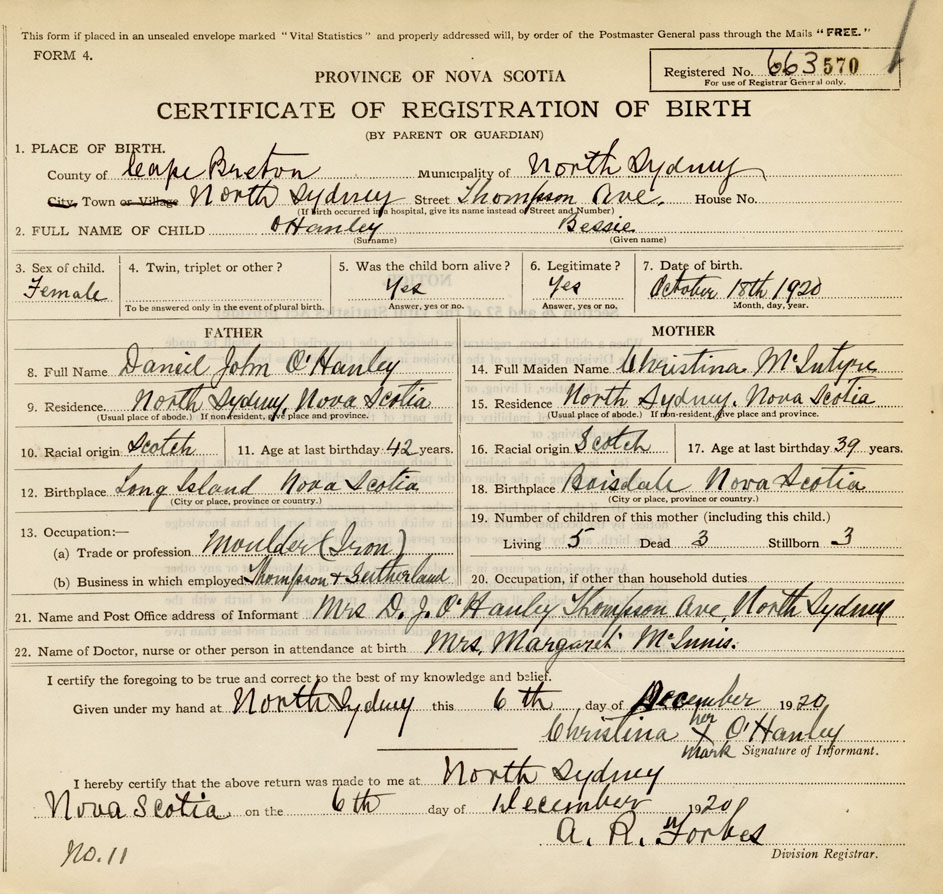 This form if placed in an unsealed envelope marked "Vital Statistics" and properly addressed will, by order of the Postmaster General pass through the Mails "FREE."
FORM 4.
Registered No. 663570
For use of Registrar General only.
PROVINCE OF NOVA SCOTIA
CERTIFICATE OF REGISTRATION OF BIRTH
(BY PARENT OR GUARDIAN)
1. PLACE OF BIRTH.
County of Cape Breton Municipality of North Sydney
City, Town or Village North Sydney Street Thompson Ave. House No.
(If Birth occurred in a hospital, give its name instead of Street and Number)
2. FULL NAME OF CHILD O'Hanley Bessie
(Surname) (Given name)
3. Sex of child. 4. Twin, triplet or other? 5. Was the child born alive? 6. Legitimate? 7. Date of birth.
Female Yes Yes October 18th 1920
To be answered only in the event of plural birth. Answer, yes or no. Answer, yes or no. Month, day, year.
FATHER
8. Full Name Daneil John O'Hanley
9. Residence. North Sydney, Nova Scotia
(Usual place of abode.) If non-resident, give place and province.
10. Racial origin Scotch 11. Age at last birthday 42 years.
12. Birthplace Long Island Nova Scotia
(City or place, province or country.)
13. Occupation:—
(a) Trade or profession Moulder (Iron)
(b) Business in which employed Thompson + Sutherland
MOTHER
14. Full Maiden Name Christina McIntyre
15. Residence North Sydney, Nova Scotia
(Usual place of abode.) If non-resident, give place and province.
16. Racial origin Scotch 17. Age at last birthday 39 years.
18. Birthplace Boisdale Nova Scotia
(City or place, province or country.)
19. Number of children of this mother (including this child.)
Living 5 Dead 3 Stillborn 3
20. Occupation, if other than household duties
21. Name and Post Office address of Informant Mrs D. J. O'Hanley Thompson Ave, North Sydney
22. Name of Doctor, nurse or other person in attendance at birth Mrs. Margaret McInnis.
I certify the foregoing to be true and correct to the best of my knowledge and belief.
Given under my hand at North Sydney this 6th day of December 1920
Christina her X mark O'Hanley
Signature of Informant.
I hereby certify that the above return was made to me at North Sydney
Nova Scotia on the 6th day of December 1920
A. R. Forbes
Division Registrar.
No. 11